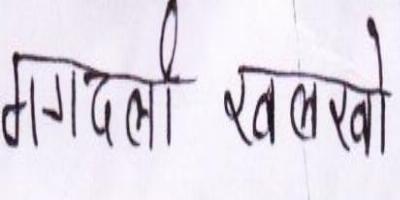 मगदली खलखो